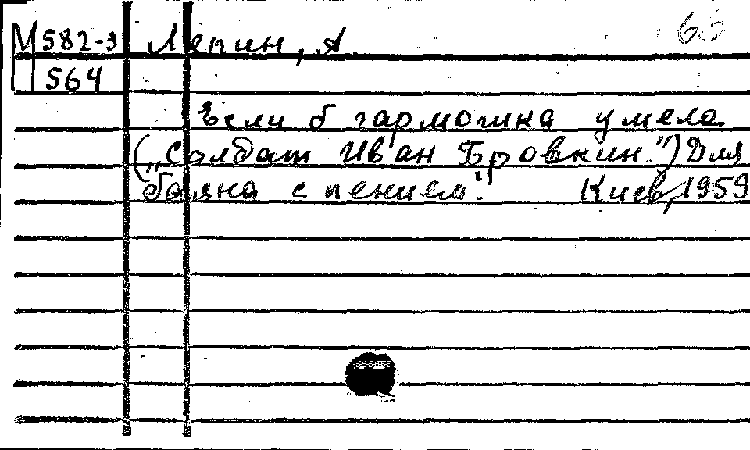 М 582-3 Лепин, А.
564
Если б гармошка умела
("Солдат Иван Бровкин.") Для
баяна с пением". Киев, 1959